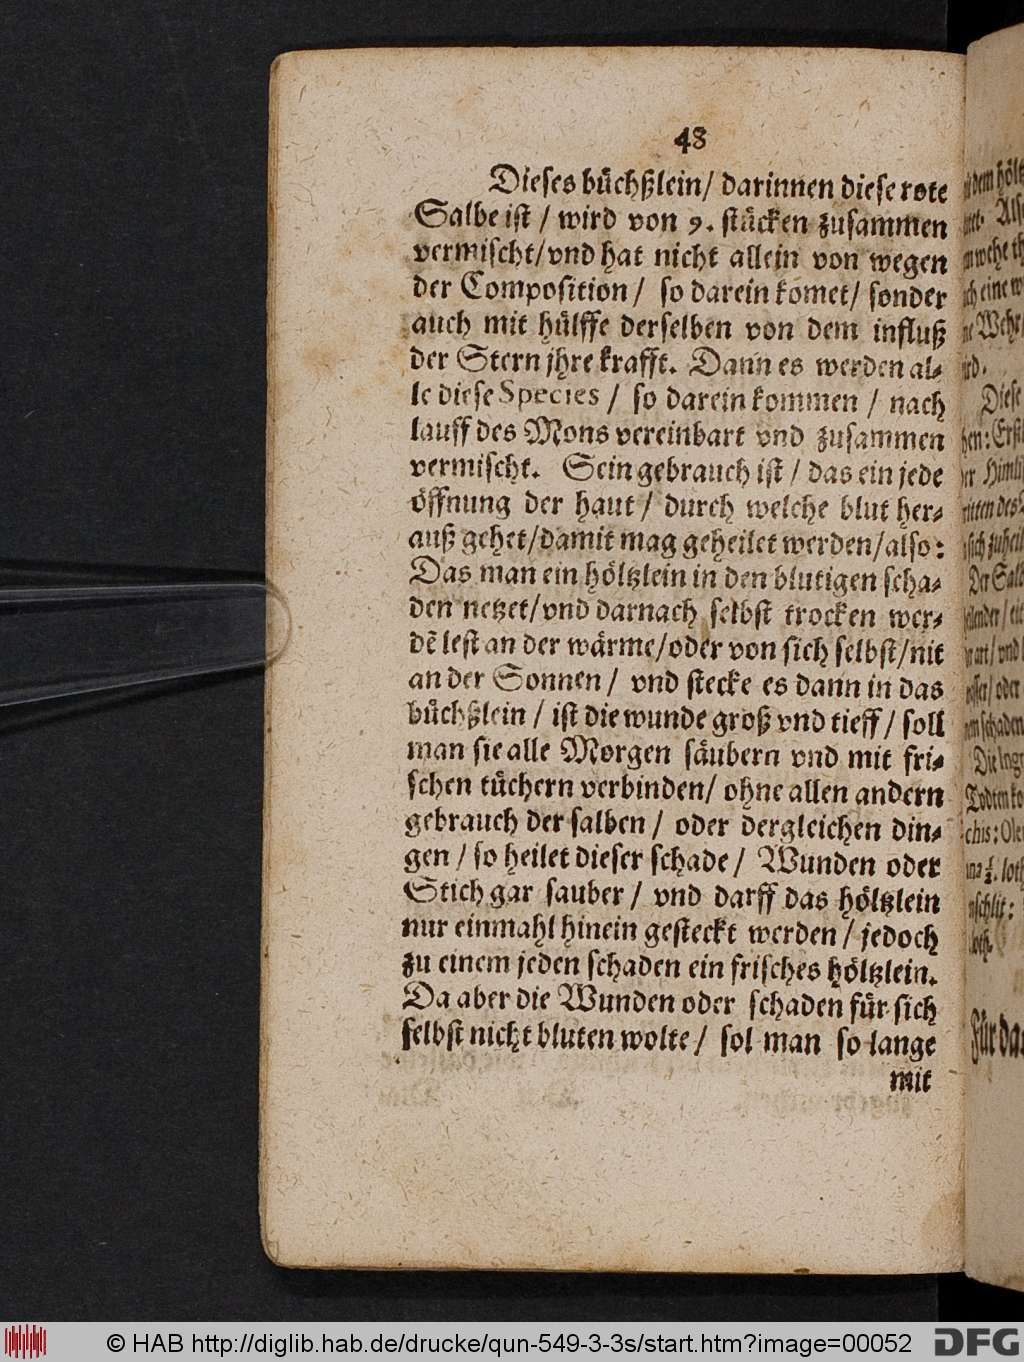 48
Dieses büchßlein/ darinnen diese rote
Salbe ist / wird von 9. stücken zusammen
vermischt/vnd hat nicht allein von wegen
der Composition / so darein komet/ sonder
auch mit hülffe derselben von dem influß
der Stern jhre krafft. Dann es werden al-
le diese Species / so darein kommen / nach
lauff des Mons vereinbart vnd zusammen
vermischt. Sein gebrauch ist / das ein jede
öffnung der haut / durch welche blut her-
auß gehet/damit mag geheilet werden/also:
Das man ein höltzlein in den blutigen scha-
den netzet/vnd darnach selbst trocken wer-
dē lest an der wärme/oder von sich selbst/nit
an der Sonnen / vnd stecke es dann in das
büchßlein / ist die wunde groß vnd tieff / soll
man sie alle Morgen säubern vnd mit fri-
schen tüchern verbinden/ ohne allen andern
gebrauch der salben / oder dergleichen din-
gen / so heilet dieser schade / Wunden oder
Stich gar sauber / vnd darff das höltzlein
nur einmahl hinein gesteckt werden / jedoch
zu einem jeden schaden ein frisches höltzlein.
Da aber die Wunden oder schaden für sich
selbst nicht bluten wolte / sol man so lange
mit
© HAB http://diglib.hab.de/drucke/qun-549-3-3s/start.htm?image=00052
DFG